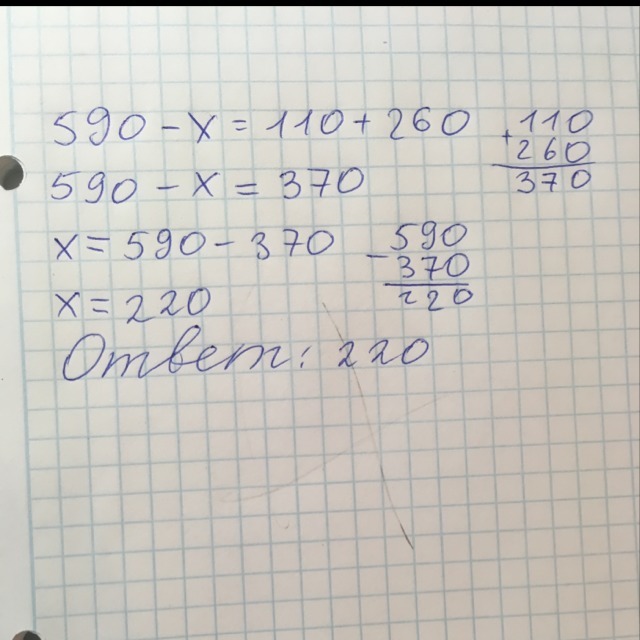 590 - x = 110 + 260
+110
260
370
590 - x = 370
x = 590 - 370
-590
370
220
x = 220
Ответ: 220